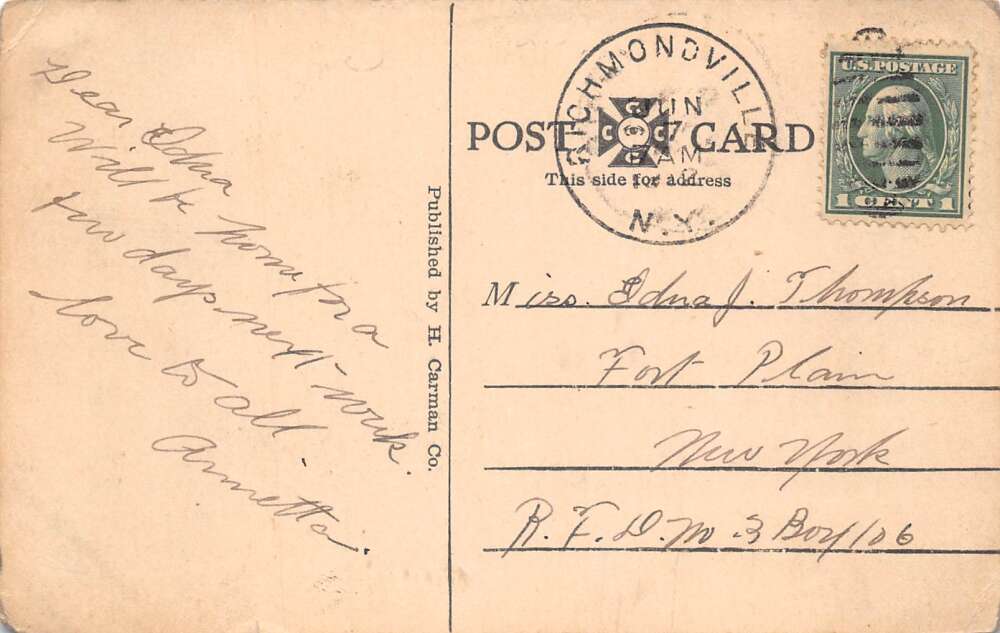 Dear Edna
Will be home for a
few days next week.
love to all.
Annetta.
Published by H. Carman Co.
RICHMONDVILLE
JUN
7
AM
N.Y.
POST CARD
This side for address
U.S. POSTAGE
1 CENT 1
Miss. Edna J. Thompson
Fort Plain
New York
R. F. D. No 3 Box 106